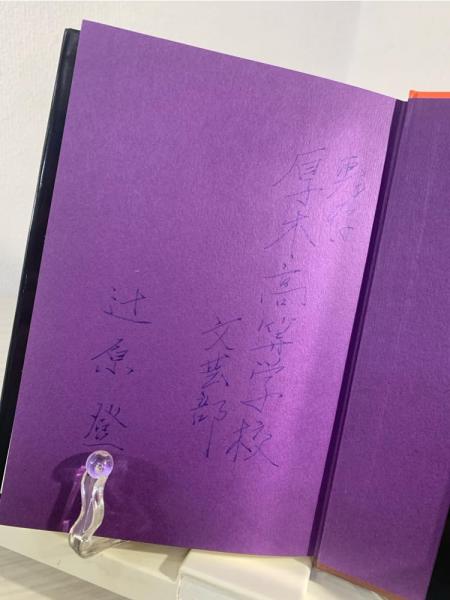 厚木高等学校
文芸部
辻原登